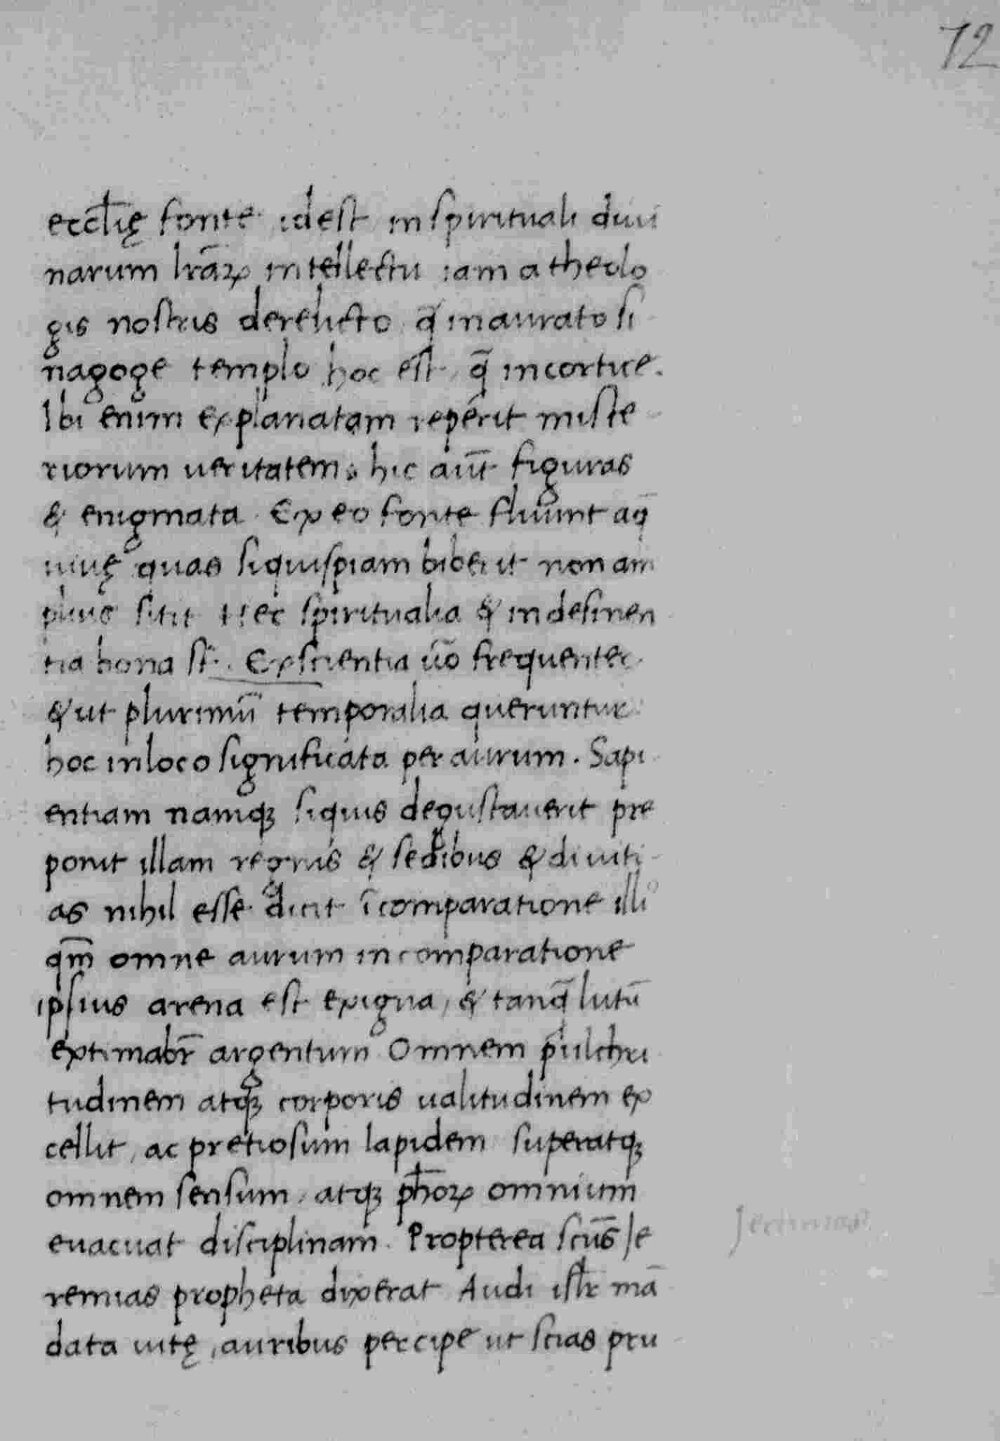 72
eccl̄ię fonte idest in spirituali diui
narum lr̄aꝝ intellectu iam a theolo
gis nostris derelicto q̄ in aurato si
nagoge templo hoc est q̄ in cortice.
Ibi enim explanatam reperit miste
riorum ueritatem. hic aut̄ figuras
& enigmata. Ex eo fonte fluunt aq̄
uiuę quas siquispiam biberit non am
plius sitit Hec spiritualia & indesinen
tia bona st̄. Ex scientia uo͞ frequenter
& ut plurimū temporalia queruntur
hoc in loco significata per aurum. Sapi
entiam namqꝫ siquis degustauerit pre
ponit illam regnis & sedibus & diuiti
as nihil esse dicit ī comparatione illiꝰ
qm̄ omne aurum in comparatione
ipsius arena est exigua, & tanq̄ lutū
extimabr̄ argentum Omnem pulchri
tudinem atqꝫ corporis ualitudinem ex
cellit, ac pretiosum lapidem superatqꝫ
omnem sensum, atqꝫ ph̄oꝝ omnium
euacuat disciplinam. Propterea scūs Je
remias propheta dixerat Audi isr̄l mā
data uitę, auribus percipe ut scias pru